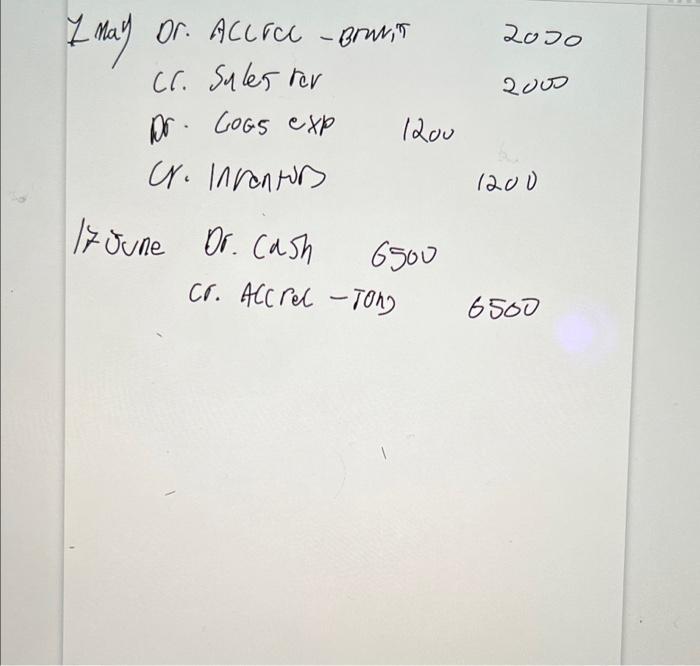 1 May Dr. Acc rec - 2000
Cr. Sales rev 2000
Dr. COGS exp 1200
Cr. Inventory 1200
17 June Dr. Cash 6500
Cr. Acc rec - Tony 6500